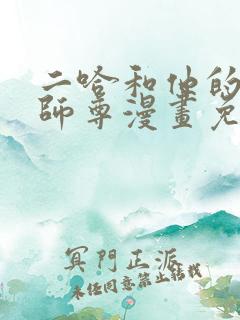 二哈和他的
師尊漫畫免
冥門正派
未经同意禁止转载